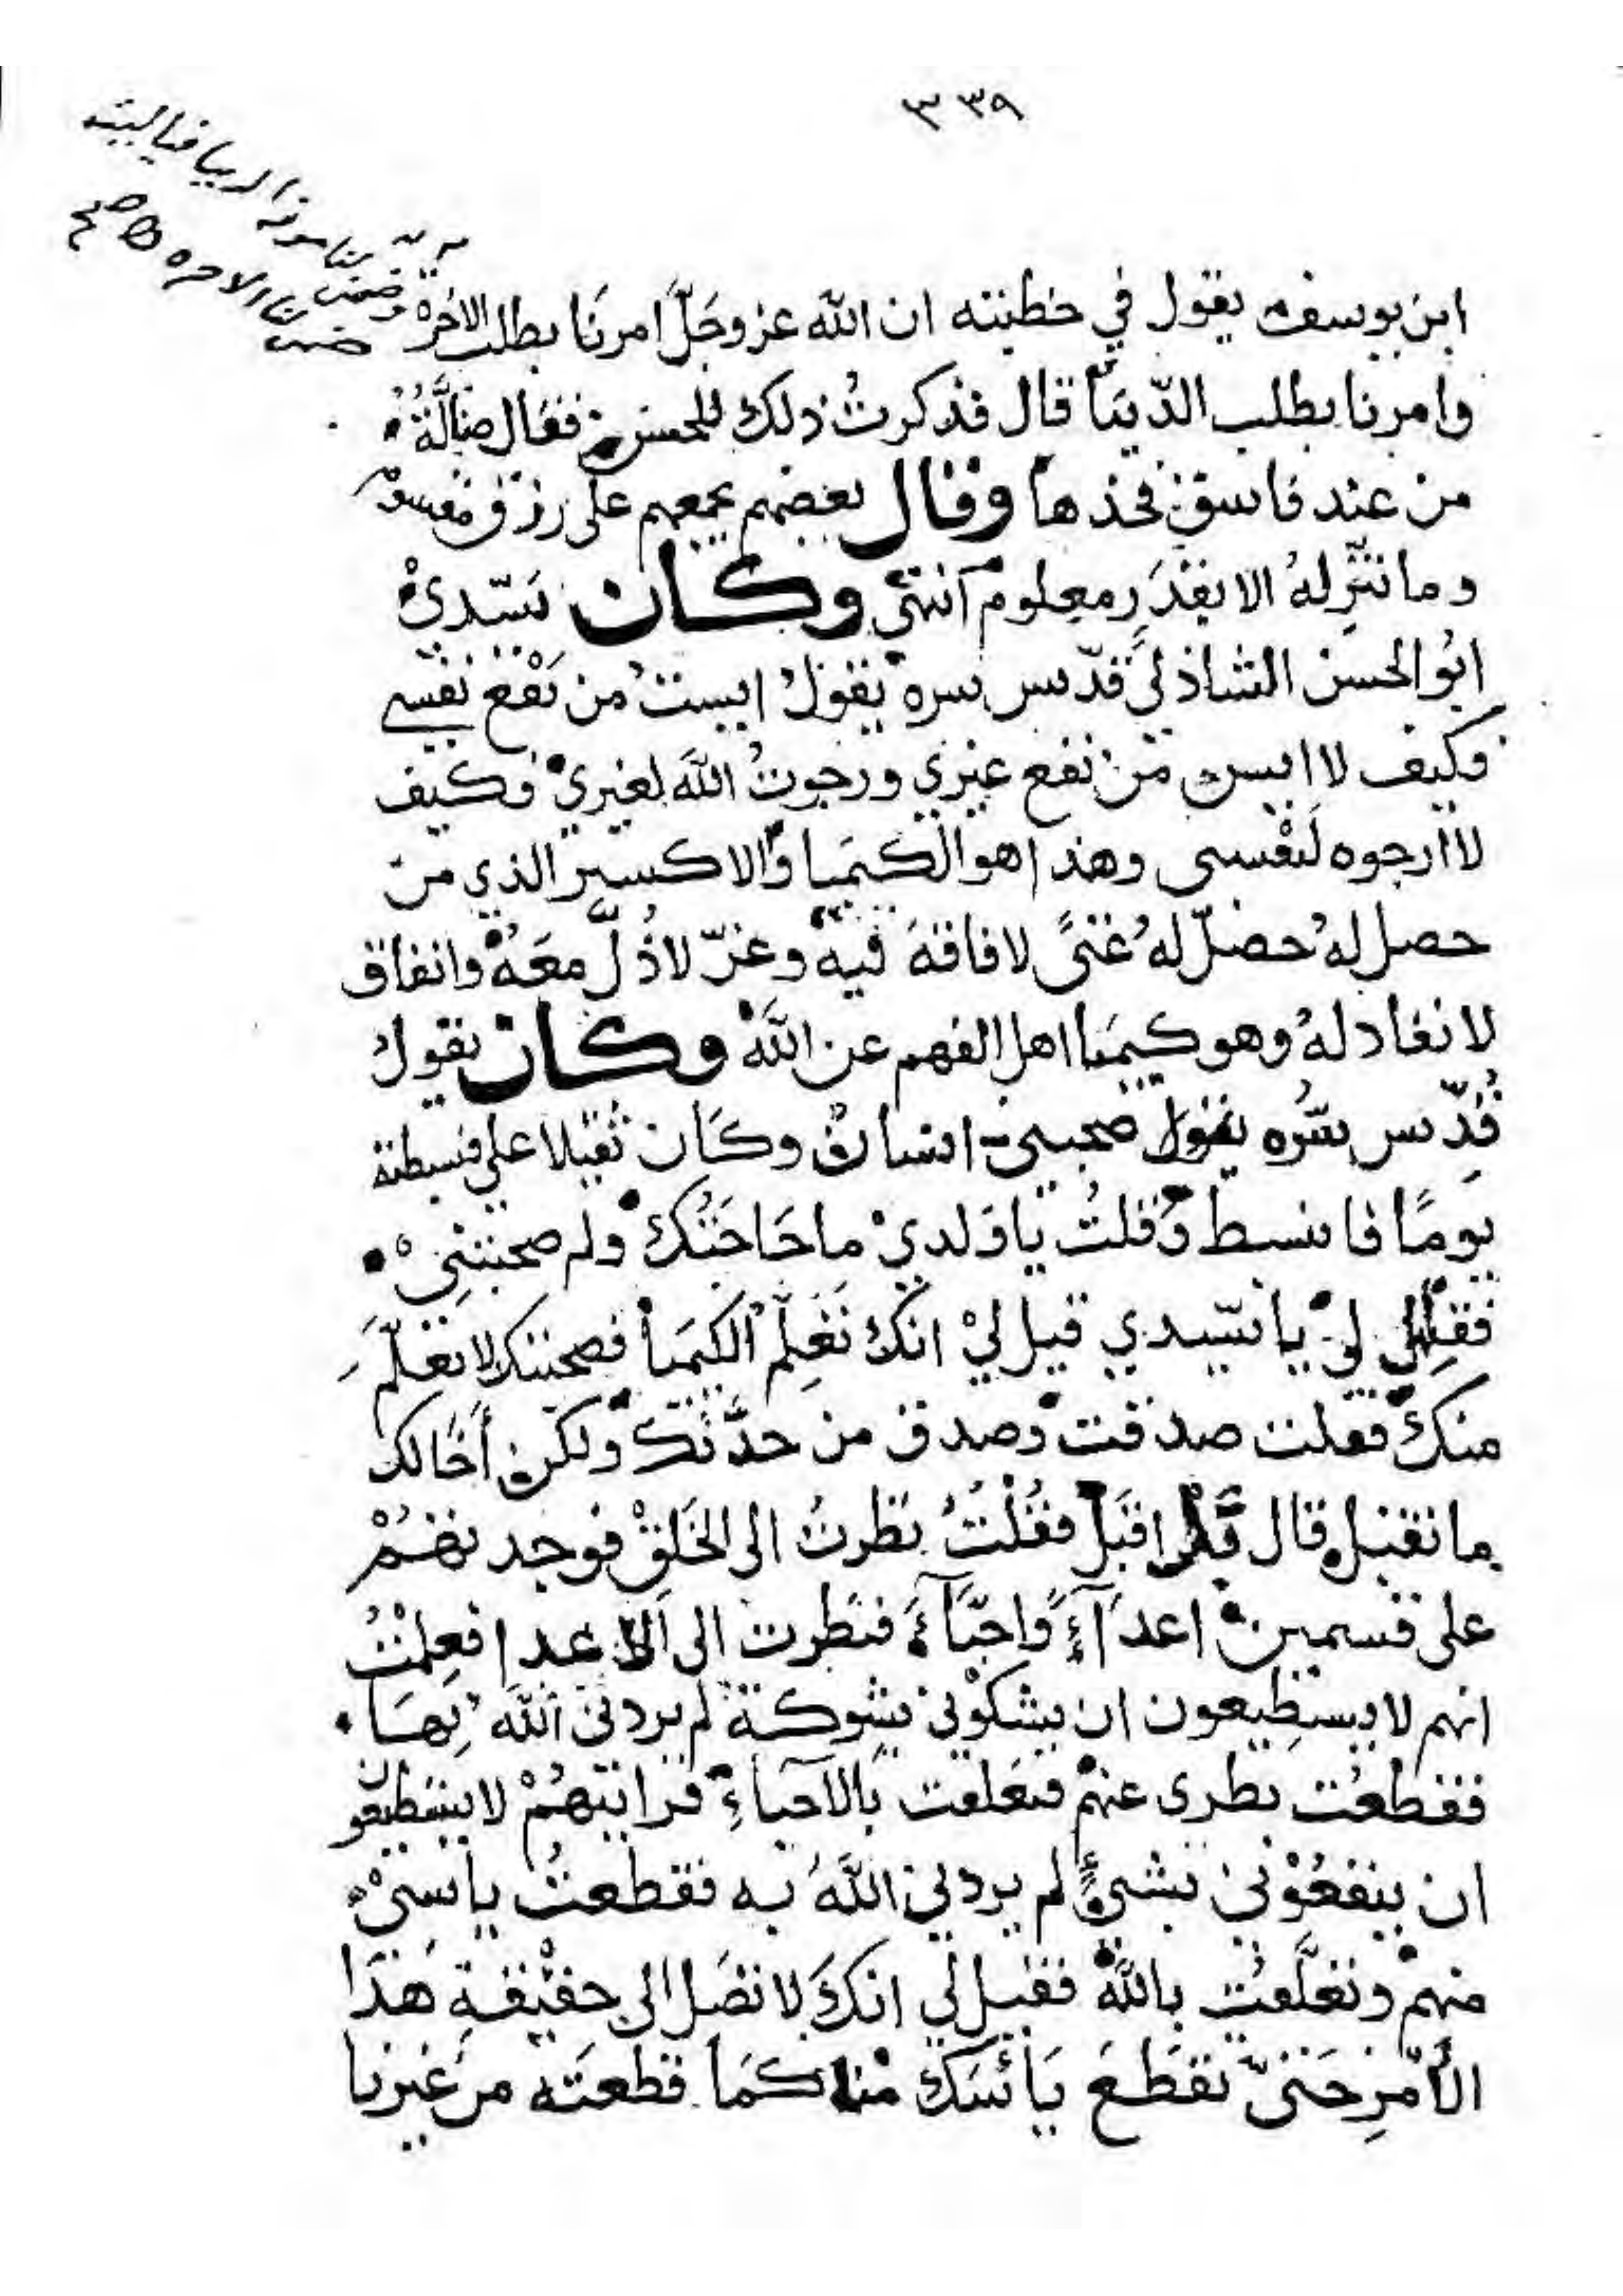 ٣٣٩
ابن يوسف يقول في خطبته ان الله عز وجلّ امرنا بطلب الاخرة
وضمن لنا مونة الدنيا فياليته
ضمن لنا الاخره صح
وامرنا بطلب الدّنيا قال فذكرتُ ذلك للحسن فقال ضالّةٌ
من عند فاسقٍ فخذها وقال بعضهم يجمعهم على رزق مقسوم
وما ننزله الا بقدَرٍ معلوم انتهى وكان سيّدي
ابُو الحسن الشاذلي قدّس سره يقولُ ايستُ من نَفْع نفسي
فكيف لا ايس من نفع غيري ورجوتُ اللهَ لغيري فكيف
لا ارجوه لنَفْسى وهذا هو الكيميا والاكسير الذي من
حصل لهُ حصلَ لهُ غنىً لا فاقةَ فيه وعزّ لا ذُلَّ معَهُ وانفاق
لا نفاد لهُ وهو كيميا اهل الفهم عن الله وكان يقولُ
قُدِّس سرُّه يقول صحبنى انسانٌ وكَان ثقيلا علي فبسطته
يومًا فانبسط وقلتُ يا وَلدي ما حَاجَتُك ولم صحبتنِي
فقال لي يا سيّدي قيل لي انّكَ تعْلم الكيميا فصحبتك لاتعلّمَ
منكَ فقلت صدقت وصدق من حدَّثكَ ولكن أخالك
ما تقبل قال بلى اقبل فقُلْتُ نظرتُ الى الخَلقِ فوجدتهُمْ
على قسمين اعدآءً واحبّآءً فنظرت الى الاعدا فعلِمْتُ
انهم لا يستطِيعون ان يشكُوني بشوكة لم يردني اللهُ بِهَا
فقطعْت نظرى عنهم فتعلقت بالاحباءِ فرايتهُمْ لا يستطيعون
ان ينفعُوْني بشيءٍ لم يردني اللهُ به فقطعتُ ياسىْ
منهم وتعلَّقتُ بالله فقيل لي انكَ لا تصَل الى حقيقةِ هَذا
الأمرِ حَتىّ تقطَعَ يَأسَك منا كمَا قطعتَه من غيرنا